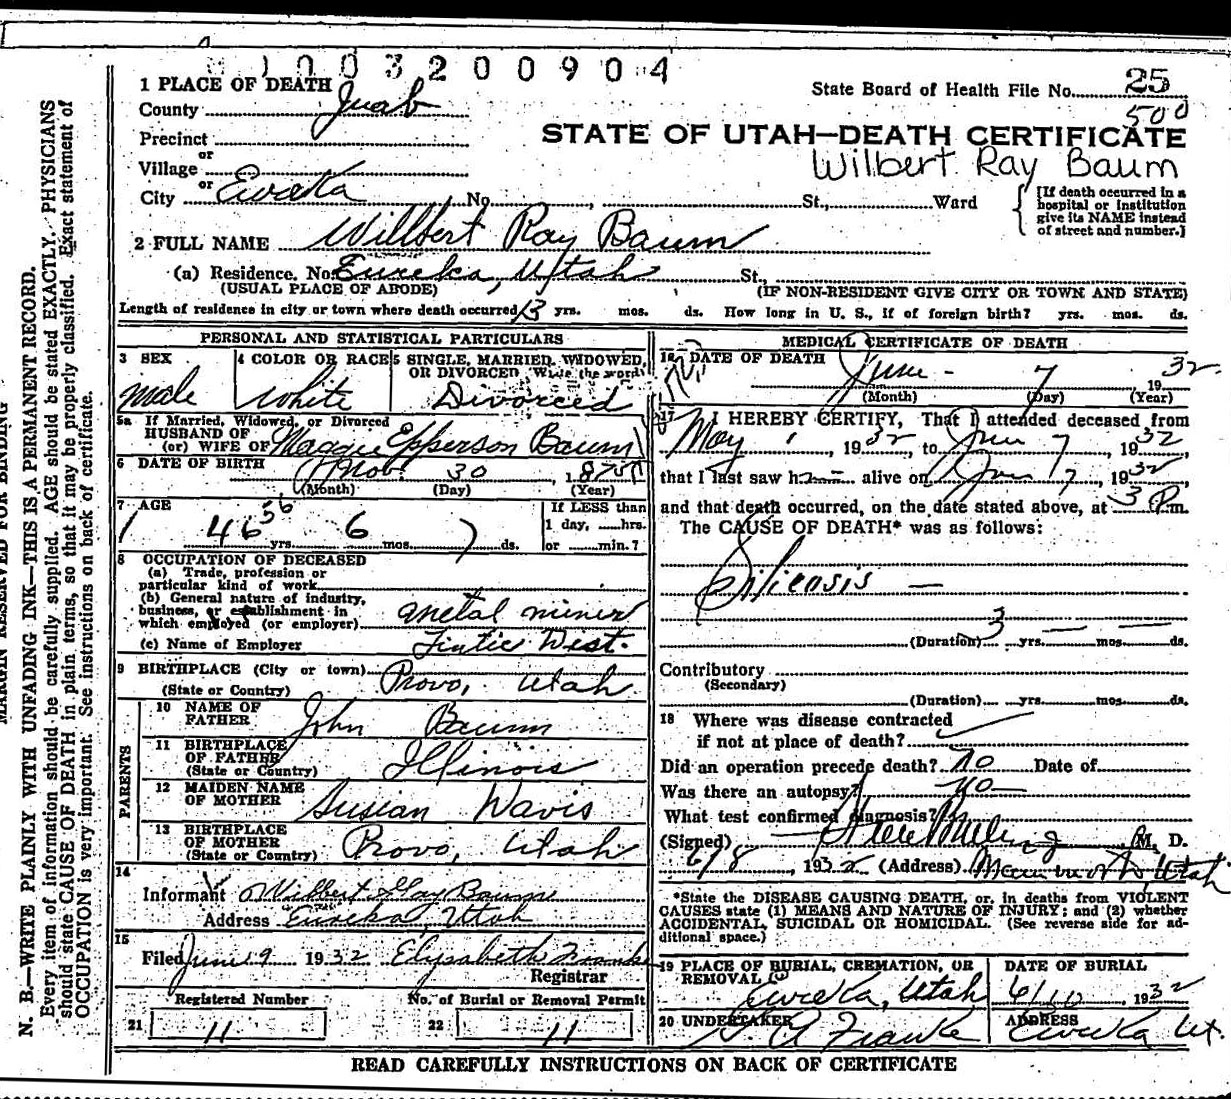 1003200904
1 PLACE OF DEATH
State Board of Health File No. 25
500
County Juab
STATE OF UTAH—DEATH CERTIFICATE
Precinct
or
Wilbert Ray Baum
Village
or
City Eureka No. , St., Ward
[If death occurred in a
hospital or institution
give its NAME instead
of street and number.]
2 FULL NAME Willbert Ray Baum
(a) Residence. No. Eureka, Utah St.,
(USUAL PLACE OF ABODE) (IF NON-RESIDENT GIVE CITY OR TOWN AND STATE)
Length of residence in city or town where death occurred 13 yrs. mos. ds. How long in U. S., if of foreign birth? yrs. mos. ds.
PERSONAL AND STATISTICAL PARTICULARS
3 SEX
male
4 COLOR OR RACE
White
5 SINGLE, MARRIED, WIDOWED,
OR DIVORCED Write the word
Divorced
5a If Married, Widowed, or Divorced
HUSBAND OF
(or) WIFE OF Maggie Epperson Baum
6 DATE OF BIRTH Nov. 30 1875
(Month) (Day) (Year)
7 AGE
56
46 yrs. 6 mos. 7 ds.
If LESS than
1 day, hrs.
or min.?
8 OCCUPATION OF DECEASED
(a) Trade, profession or
particular kind of work
(b) General nature of industry,
business, or establishment in
which employed (or employer) metal miner
(c) Name of Employer Tintic West.
9 BIRTHPLACE (City or town) Provo, Utah
(State or Country)
PARENTS
10 NAME OF
FATHER John Baum
11 BIRTHPLACE
OF FATHER Illinois
(State or Country)
12 MAIDEN NAME
OF MOTHER Susian Davis
13 BIRTHPLACE
OF MOTHER Provo, Utah
(State or Country)
14
Informant Wilbert Ray Baum
Address Eureka, Utah
15
Filed June 9 1932 Elysabeth Franke
Registrar
Registered Number No. of Burial or Removal Permit
21 11 22 11
MEDICAL CERTIFICATE OF DEATH
16 DATE OF DEATH
June - 7, 1932
(Month) (Day) (Year)
17 I HEREBY CERTIFY, That I attended deceased from
May , 1932, to June 7, 1932,
that I last saw him alive on June 7, 1932,
and that death occurred, on the date stated above, at 3 P.m.
The CAUSE OF DEATH* was as follows:
Silicosis —
(Duration) 3 yrs. — mos. — ds.
Contributory
(Secondary)
(Duration) yrs. mos. ds.
18 Where was disease contracted
if not at place of death?
Did an operation precede death? no Date of
Was there an autopsy? no
What test confirmed diagnosis?
(Signed) M. D.
6/8, 1932 (Address) Utah
*State the DISEASE CAUSING DEATH, or, in deaths from VIOLENT
CAUSES state (1) MEANS AND NATURE OF INJURY; and (2) whether
ACCIDENTAL, SUICIDAL OR HOMICIDAL. (See reverse side for ad-
ditional space.)
19 PLACE OF BURIAL, CREMATION, OR
REMOVAL
Eureka, Utah
DATE OF BURIAL
6/10, 1932
20 UNDERTAKER
A Franke
ADDRESS
Eureka Ut.
READ CAREFULLY INSTRUCTIONS ON BACK OF CERTIFICATE
MARGIN RESERVED FOR BINDING
N. B.—WRITE PLAINLY WITH UNFADING INK—THIS IS A PERMANENT RECORD.
Every item of information should be carefully supplied. AGE should be stated EXACTLY. PHYSICIANS
should state CAUSE OF DEATH in plain terms, so that it may be properly classified. Exact statement of
OCCUPATION is very important. See instructions on back of certificate.